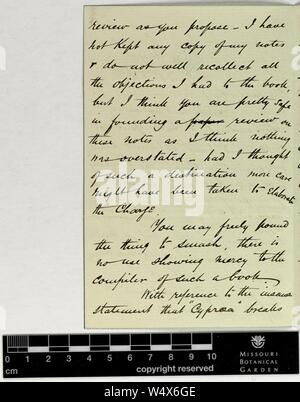 review as you propose - I have
not kept any copy of my notes
& do not well recollect all
the objections I had to the book,
but I think you are pretty safe
in founding a review on
these notes as I think nothing
was overstated - had I thought
of such a destination more care
might have been taken to Elaborate
the Charge
You may freely pound
the thing to smash, there is
no use showing mercy to the
compiler of such a book.
With reference to the
statement that "Cypraea" breaks
alamy
0 1 2 3 4 5 6 7 8 9 10
cm
copyright reserved
MISSOURI
BOTANICAL
GARDEN
alamy
W4X6GE